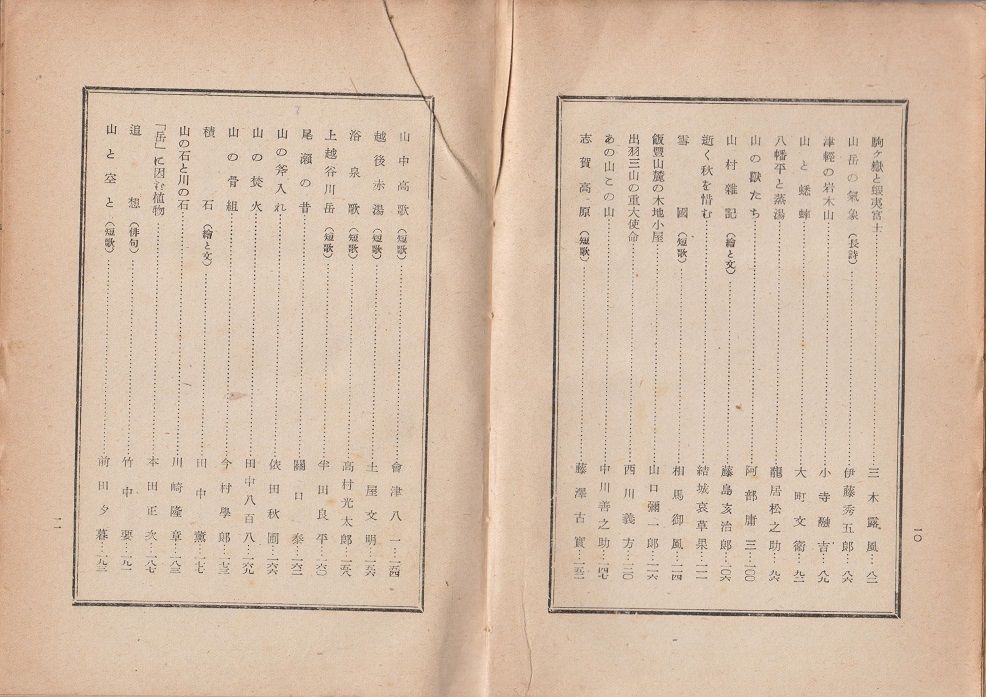 駒ケ嶽と蝦夷富士……三木露風…八二
山岳の氣象(長詩)……伊藤秀五郎…八六
津輕の岩木山……小寺融吉…八九
山と蟋蟀……大町文衞…九二
八幡平と蒸湯……龍居松之助…九六
山の獸たち……阿部庸三…一〇〇
山村雜記(繪と文)……藤島亥治郎…一〇六
逝く秋を惜む……結城哀草果…一一一
雪國(短歌)……相馬御風…一一四
飯豐山麓の木地小屋……山口彌一郎…一一六
出羽三山の重大使命……西川義方…一三〇
あの山この山……中川善之助…一四七
志賀高原(短歌)……藤澤古實…一五二
一〇
山中高歌(短歌)……會津八一…一五四
越後赤湯(短歌)……土屋文明…一五六
浴泉歌(短歌)……高村光太郎…一五八
上越谷川岳(短歌)……半田良平…一六〇
尾瀬の昔……關口泰…一六二
山の斧入れ……依田秋圃…一六六
山の焚火……田中八百八…一六九
山の骨組……今村學郎…一七三
積石(繪と文)……田中薰…一七七
山の石と川の石……川崎隆章…一八三
「岳」に因む植物……本田正次…一八七
追想(俳句)……竹中要…一九一
山と空と(短歌)……前田夕暮…一九三
一一